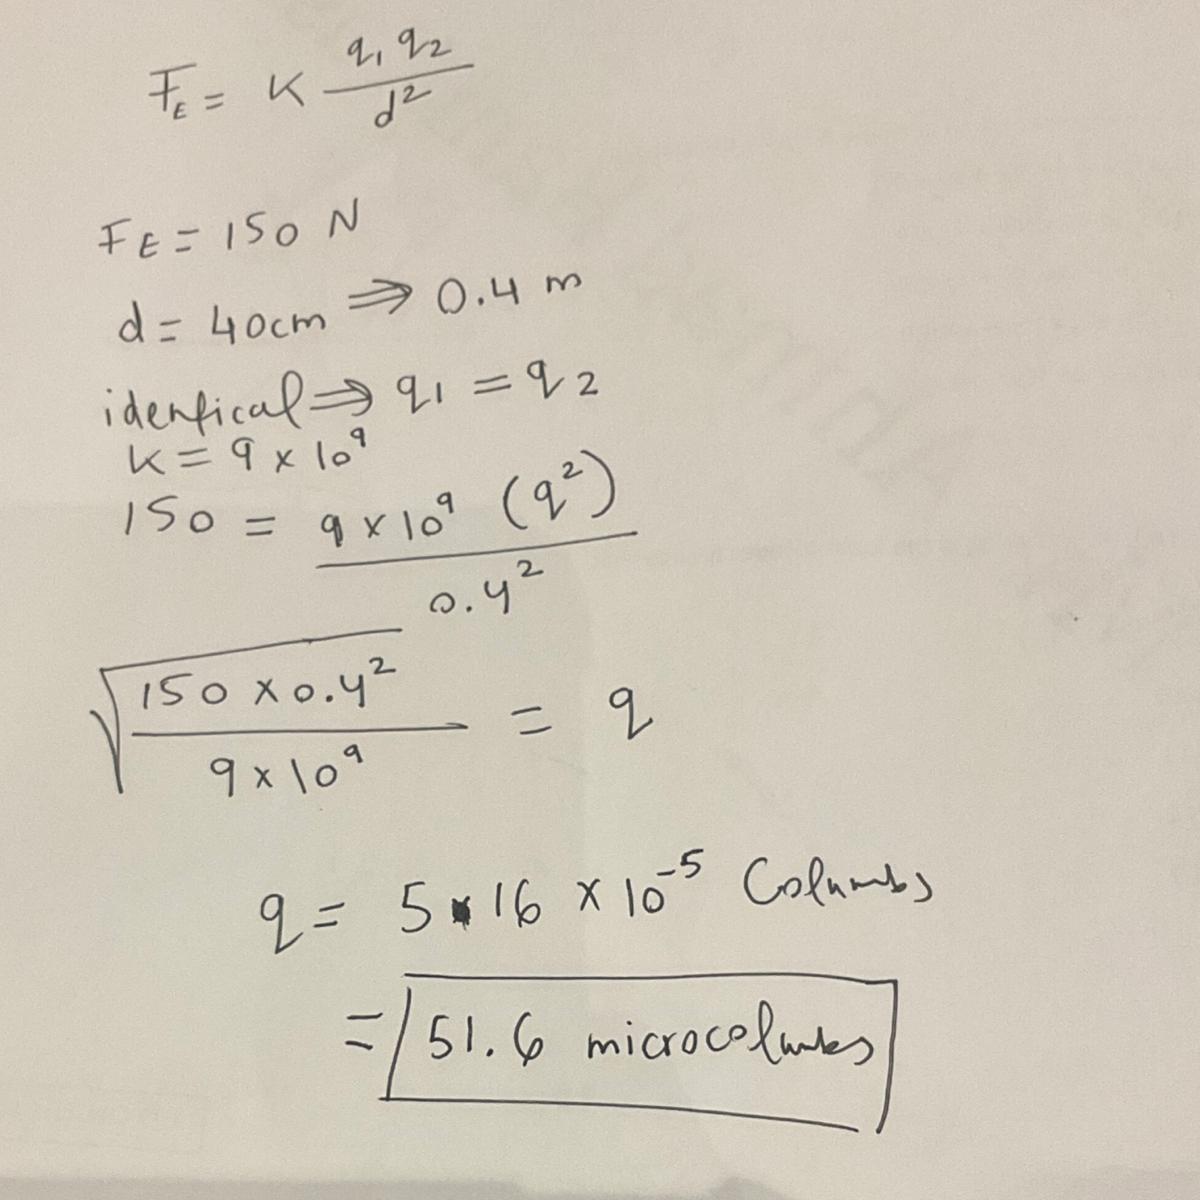 F_E = K q₁ q₂ / d²
F_E = 150 N
d = 40cm ⇒ 0.4 m
identical ⇒ q₁ = q₂
K = 9 × 10⁹
150 = 9 × 10⁹ (q²) / 0.4²
√(150 × 0.4² / 9 × 10⁹) = q
q = 5.16 × 10⁻⁵ Columbs
= 51.6 microcolumbs